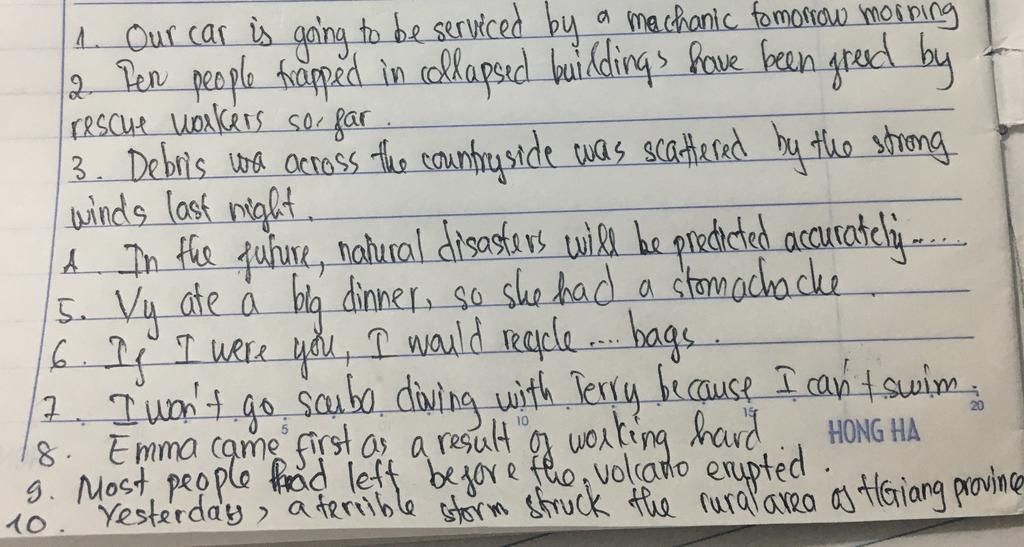 1. Our car is going to be serviced by a mechanic tomorrow morning
2. Pen people trapped in collapsed buildings have been freed by
rescue workers so, far.
3. Debris wa across the countryside was scattered by the strong
winds last night.
4. In the future, natural disasters will be predicted accurately.....
5. Vy ate a big dinner, so she had a stomachacke.
6. If I were you, I would recycle .... bags.
7. I won't go scuba diving with Terry because I can't swim.
5 10 15 20
8. Emma came first as a result of working hard.
HONG HA
9. Most people had left before the volcano erupted.
10. Yesterday, a terrible storm struck the rural area of HGiang province